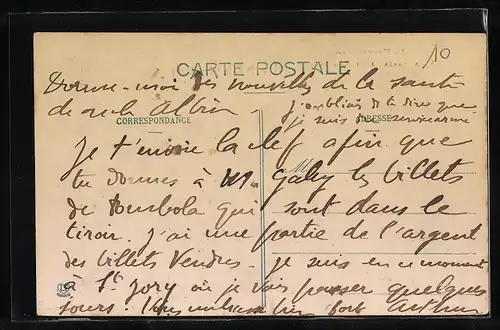 10
CARTE POSTALE
Donne-moi des nouvelles de la santé
de Albin
j'oubliais de te dire que
je suis
CORRESPONDANCE
ADRESSE
Je t'envoie la clef afin que
tu donnes à Mr Gaby les billets
de Tombola qui sont dans le
tiroir. j'ai une partie de l'argent
des billets vendus. Je suis en ce moment
à St Jory où je vais passer quelques
jours. bien fort Arthur